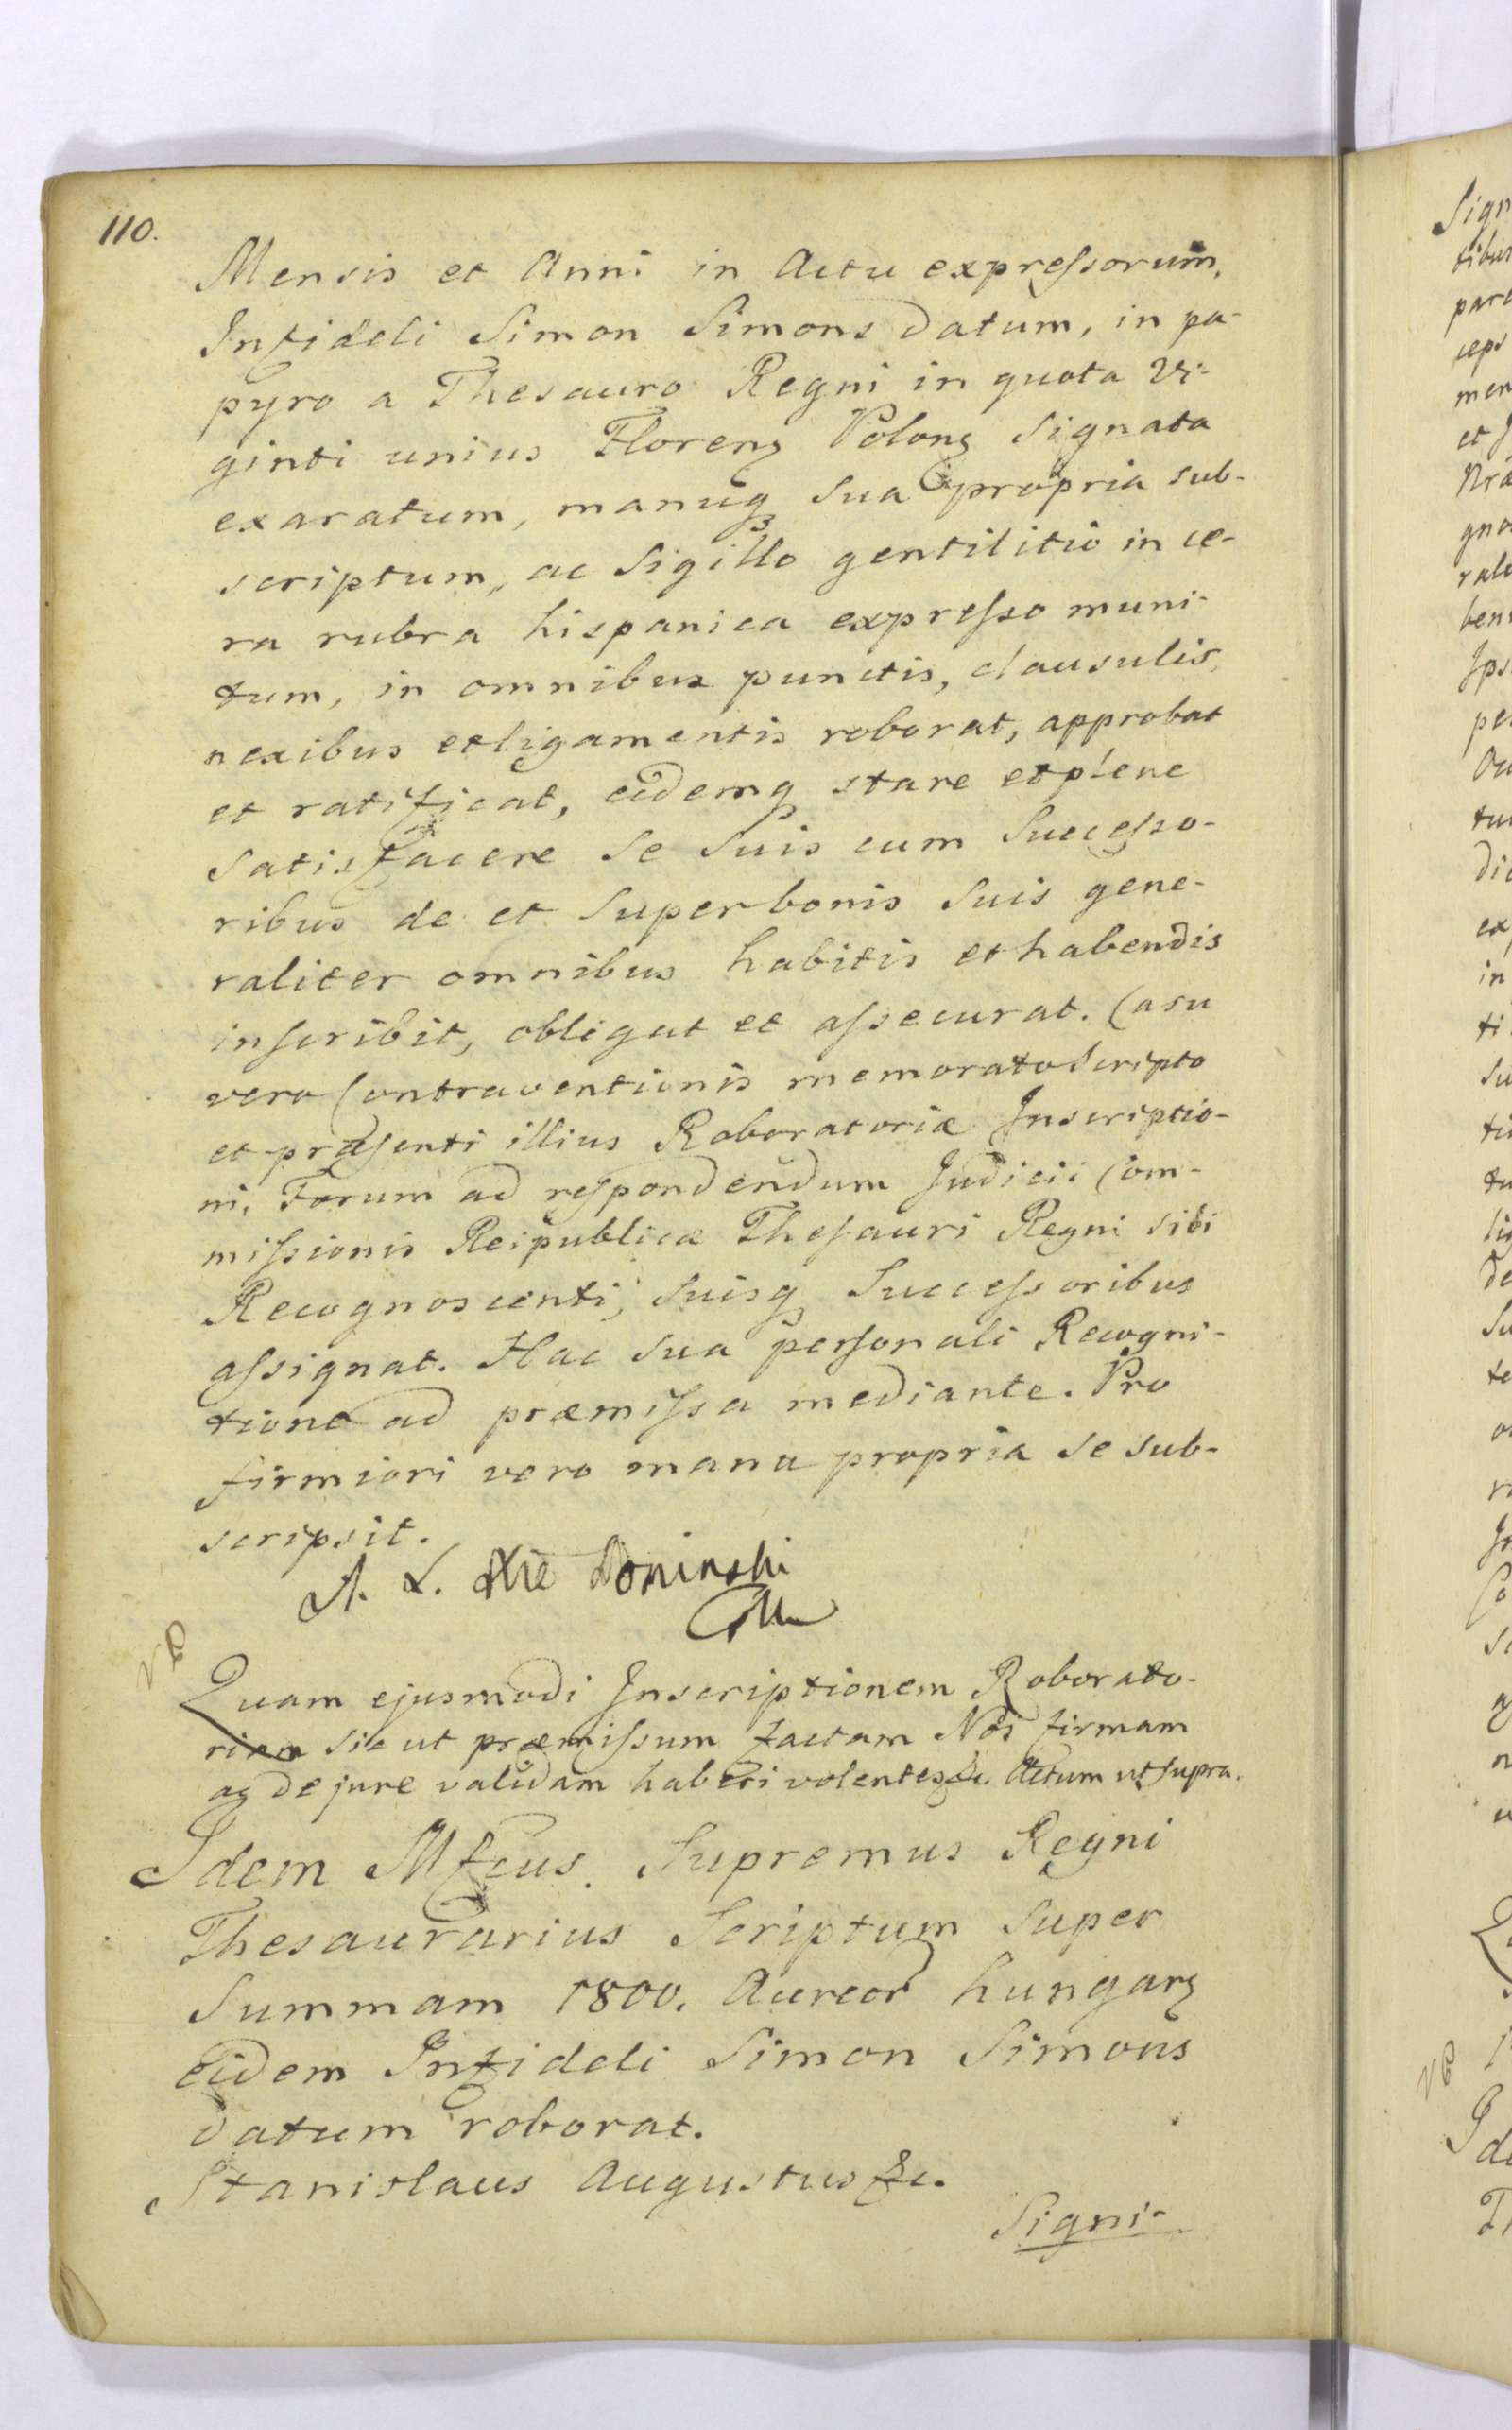 110.
Mensis et Anni in Actu expressorum,
Infideli Simon Simons datum, in pa-
pyro a Thesauro Regni in quota Vi-
ginti unius Florenz Polonz Signata
exaratum, manuq sua propria sub-
scriptum, ac Sigillo gentilitio in ce-
ra rubra hispanica expresso muni-
tum, in omnibus punctis, clausulis,
nexibus et ligamentis roborat, approbat
et ratificat, eidemq stare et plene
satisfacere se suis cum Successo-
ribus de et super bonis suis gene-
raliter omnibus habitis et habendis
inscribit, obligat et assecurat. Casu
vero Contraventionis memorato Scripto
et præsenti illius Roboratoriæ Inscriptio-
ni, Forum ad respondendum Judicii Com-
missionis Reipublicæ Thesauri Regni sibi
Recognoscenti, suisq Successoribus
assignat. Hac sua personali Recogni-
tione ad præmissa mediante. Pro
firmiori vero manu propria se sub-
scripsit.
A. L. Xże Poninski
Quam ejusmodi Inscriptionem Roborato-
riam sic ut præmissum factam Nos firmam
ac de jure validam haberi volentes &c. Actum ut supra.
Idem Mfcus. Supremus Regni
Thesaurarius Scriptum super
Summam 1800. Aureor hungarz
eidem Infideli Simon Simons
datum roborat.
Stanislaus Augustus &c.
Signi-